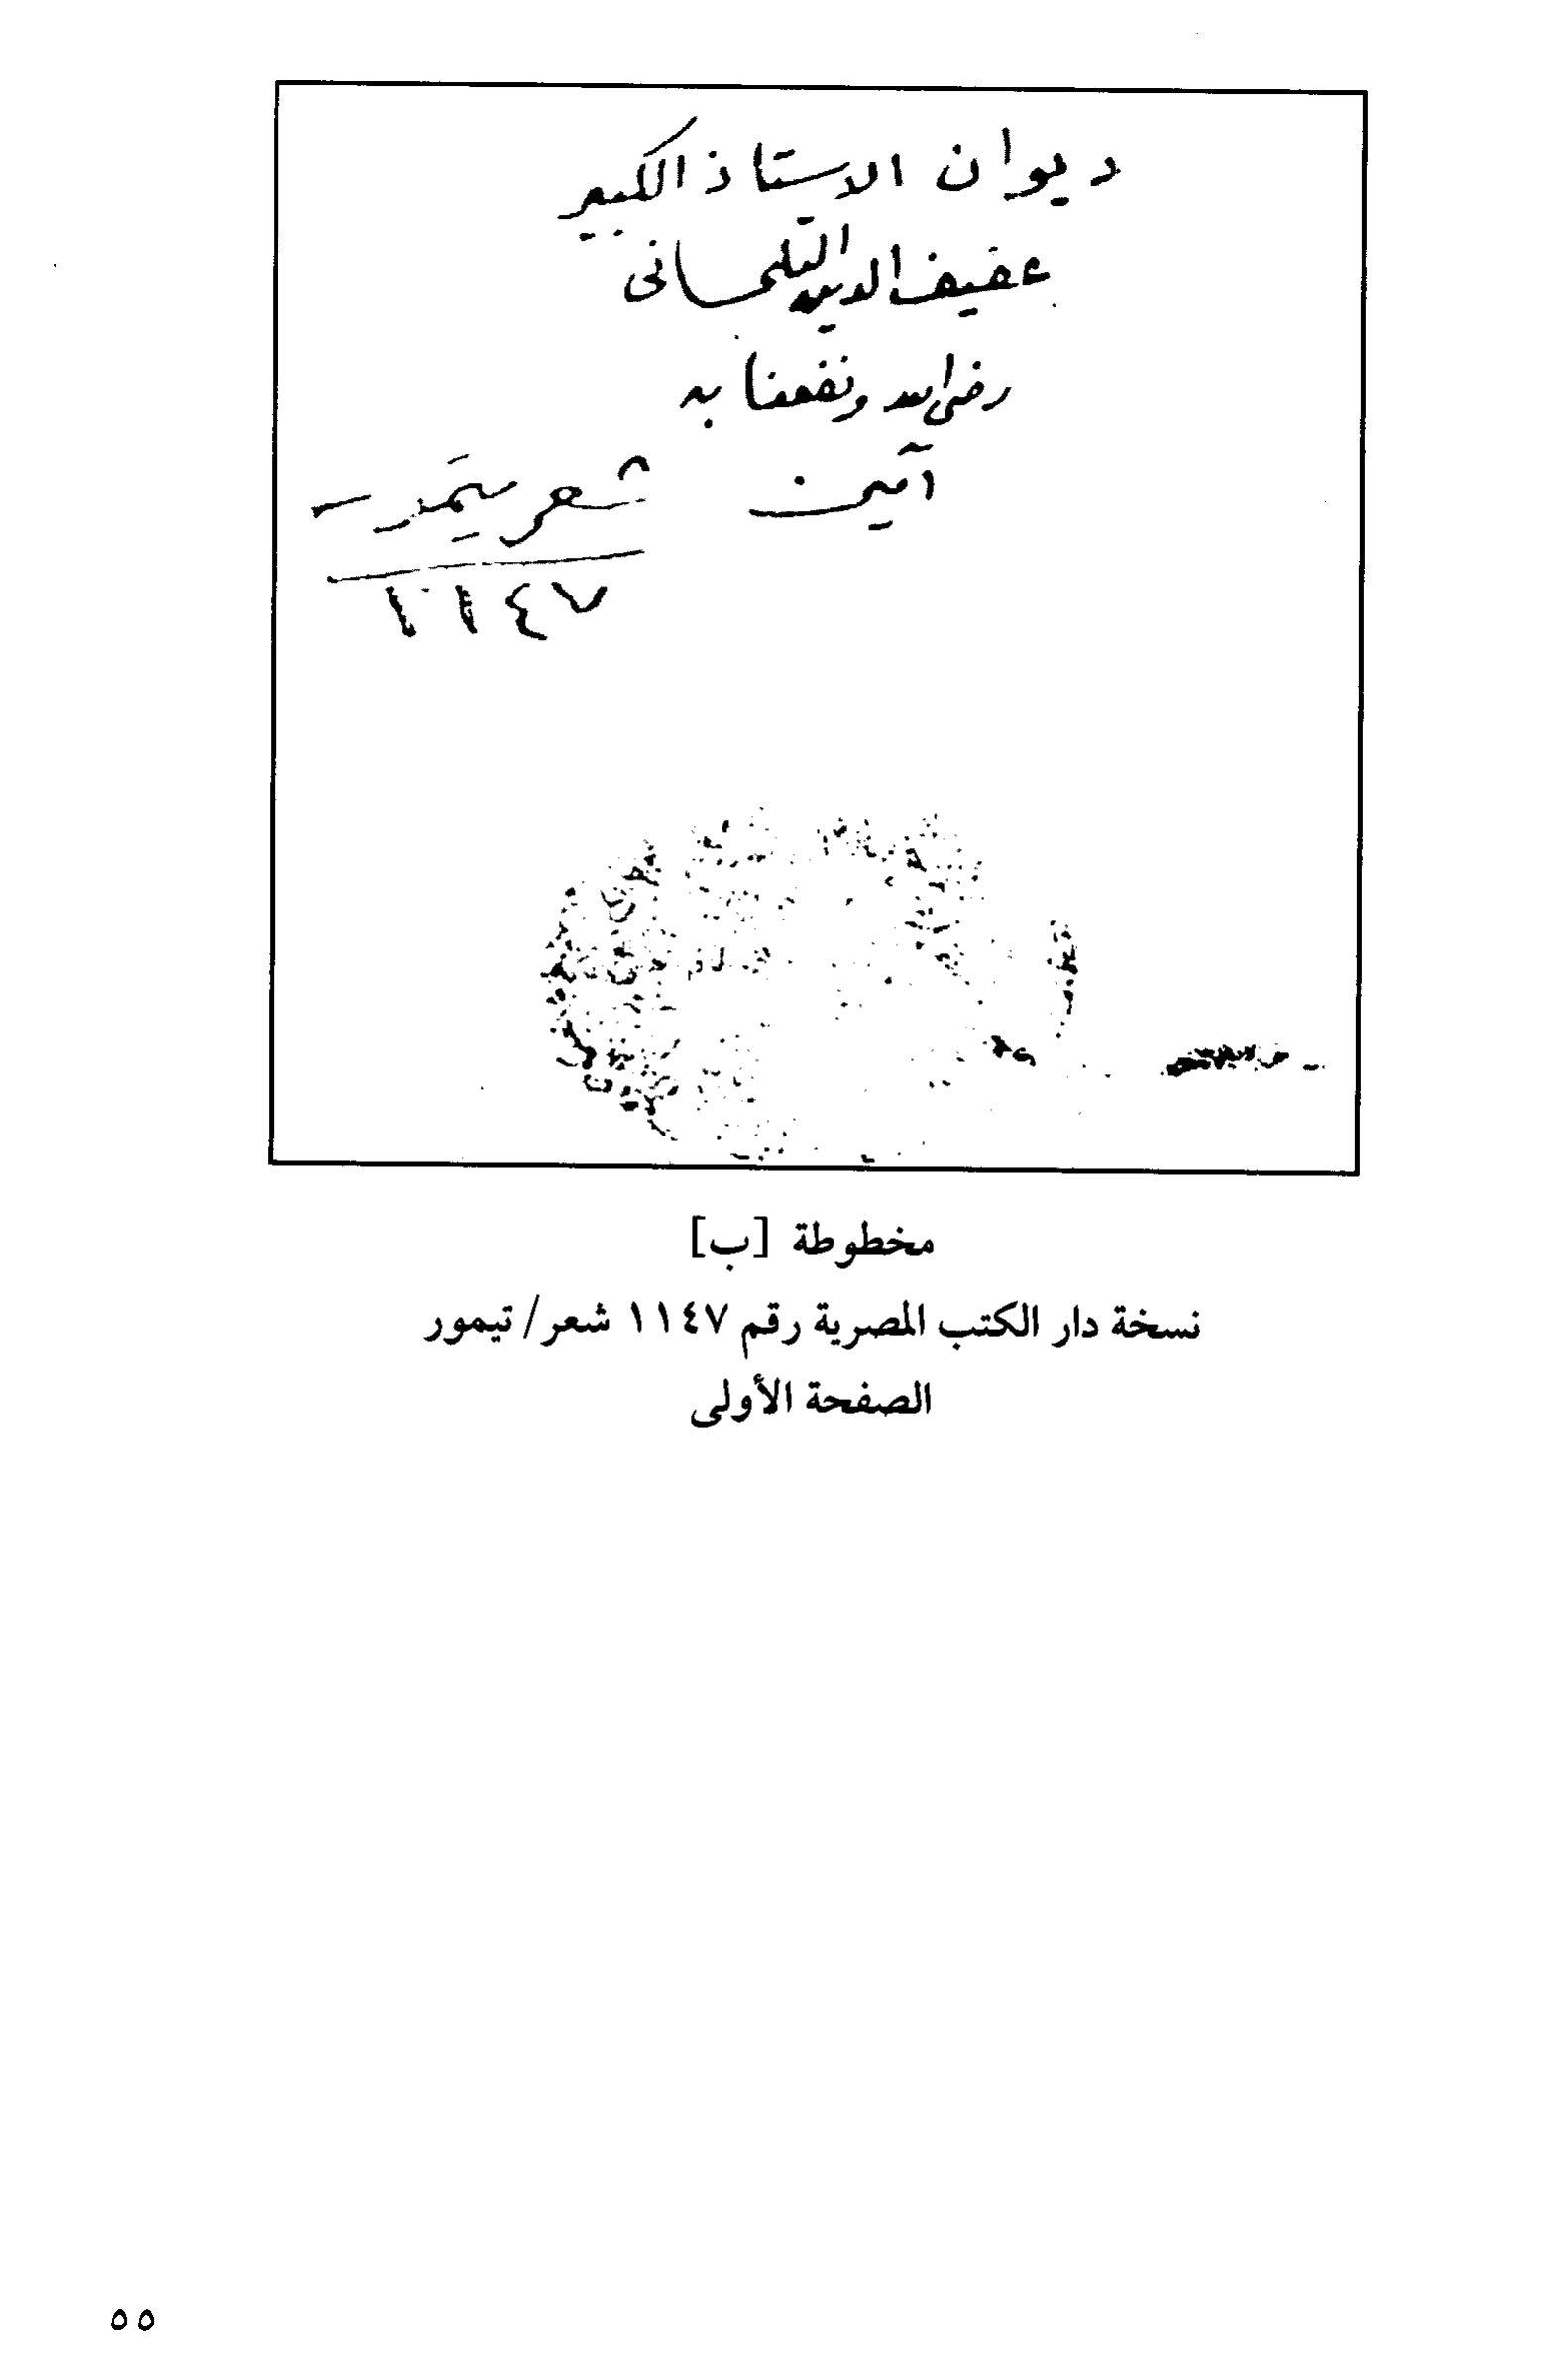 ديوان الاستاذ الكبير
عفيف الدين التلمسانى
رضى الله ونفعنا به
آمين
شعر تيمور
١١٤٧
مخطوطة [ب]
نسخة دار الكتب المصرية رقم ١١٤٧ شعر/ تيمور
الصفحة الأولى
٥٥